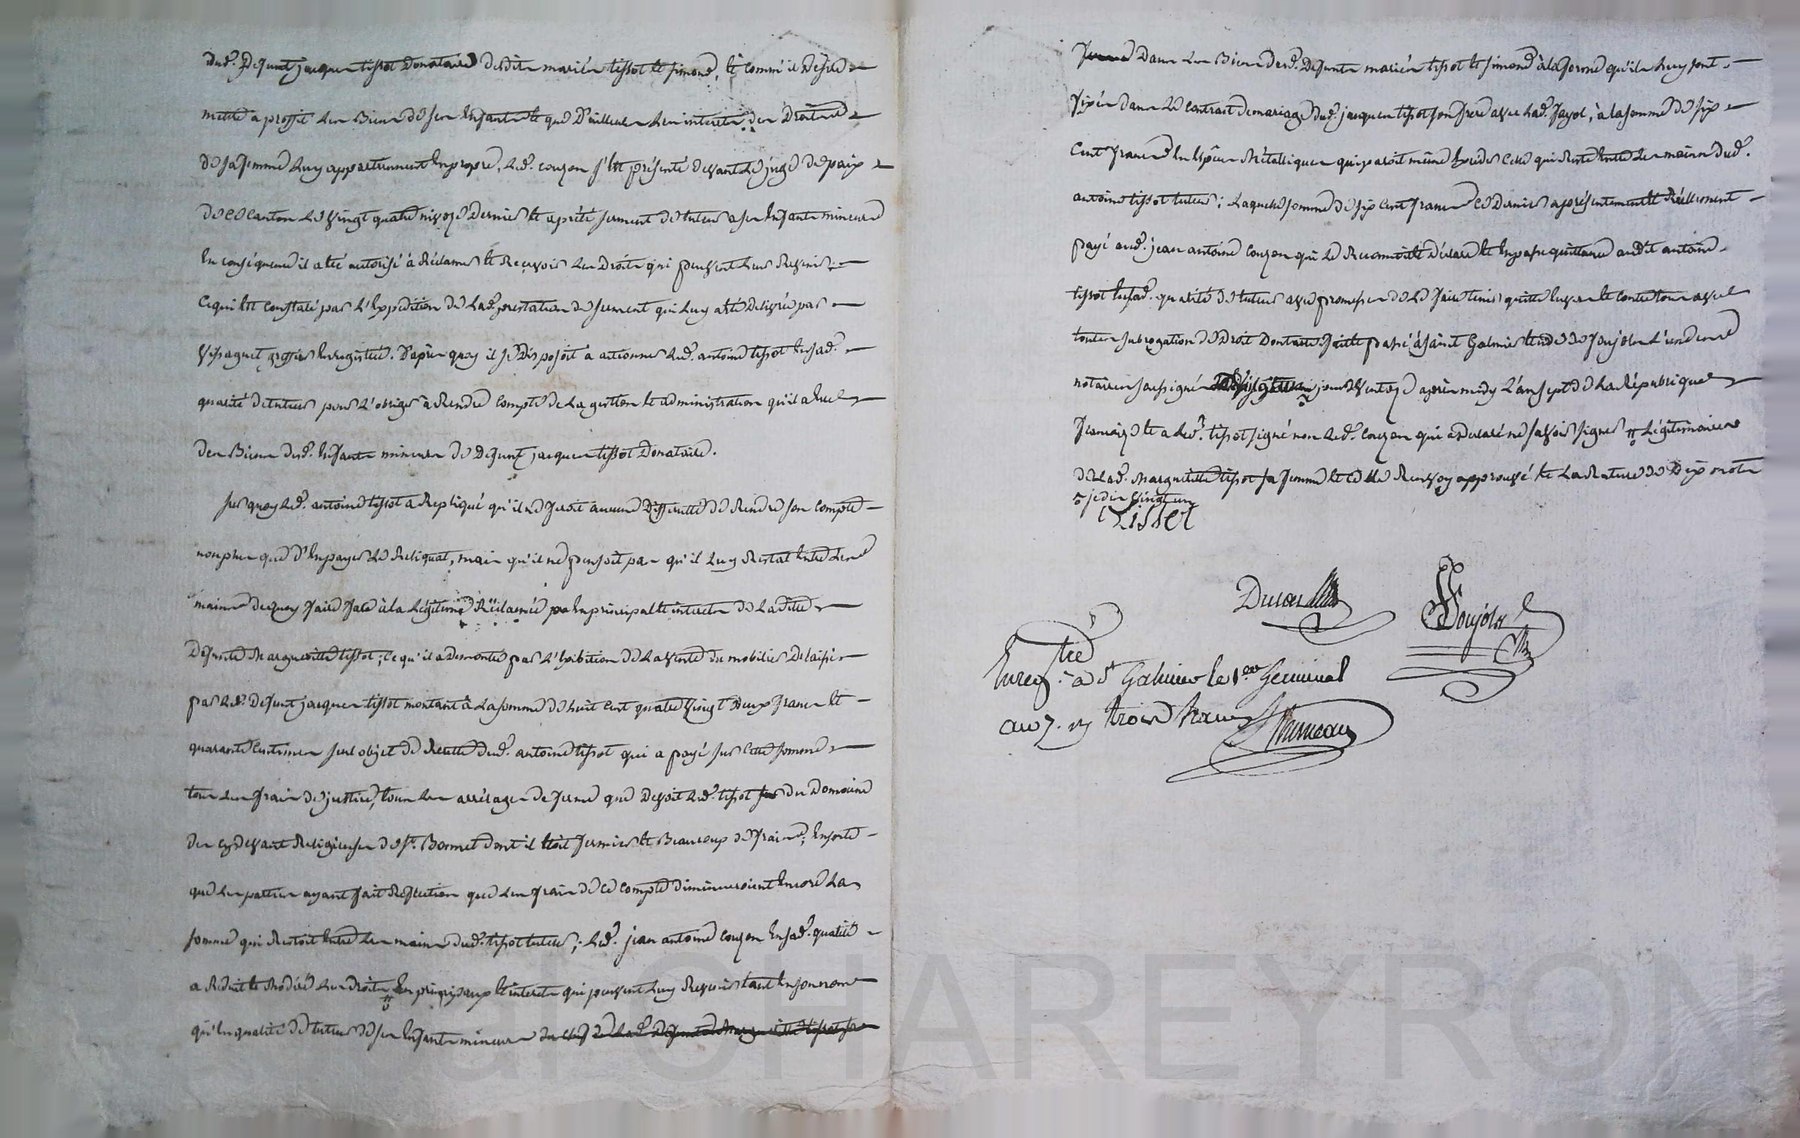 dud. Defunt jacques tissot Donataire desdits mariés tissot et simond, et comme il desire
mettre a proffit les Biens de ses Enfants et que d'ailleurs les interets des Droits
de sa femme luy appartiennent En propre, led. couzon s'est présenté devant le juge de paix
de ce canton le vingt quatre nivose dernier et a prêté serment de tuteur a ses Enfants mineurs
En conséquence il a été autorisé à Réclamer et Recevoir les Droits qui peuvent leur Revenir
ce qui est constaté par l'Expédition de lad. prestation de serment qui luy a été délivrée par
greffier Enregistrée. D'après quoy il se disposoit a actionner led. antoine tissot En sad.
qualité de tuteur pour l'obliger à Rendre compte de la gestion et administration qu'il a Eue
des Biens desd. Enfants mineurs de defunt jacques tissot Donataire.
sur quoy led. antoine tissot a Repliqué qu'il ne feroit aucune Difficulté de Rendre son compte
non plus que d'En payer le Reliquat, mais qu'il ne pensoit pas qu'il luy Restat Entre les
mains de quoy faire face à la Légitime Réclamée En principal et interets de laditte
Defunte Margueritte tissot, ce qu'il a demontré par l'Exibition de la vente du mobilier delaissé
par led. Defunt jacques tissot montant à la somme de huit cent quatre vingt Deux francs et
quarante centimes seul objet de Recette dud. antoine tissot qui a payé sur cette somme
tous les frais de justice, tous les arrérages de ferme que devoit led. tissot du Domaine
des cydevant Religieuses de St. Bonnet dont il étoit fermier et Beaucoup de frais, Ensorte
que les parties ayant fait Reflection que les frais de ce compte diminueroient Encore la
somme qui Restoit Entre les mains dud. tissot tuteur, led. jean antoine couzon En sad. qualité
a Reduit et Modéré les droits En principaux et interets qui peuvent luy Revenir tant En son nom
qu'En qualité de tuteur de ses Enfants mineurs
Dans les Biens desd. Defunts mariés tissot et simond à la forme qu'ils luy sont
fixés dans le contrat de mariage dud. jacques tissot son frere avec lad. fayot, à la somme de six
cent francs En Espèces Métalliques qui paroit même Excéder celle qui Reste Entre les mains dud.
antoine tissot tuteur; laquelle somme de six cent francs ce dernier a présentement et Réellement
payé aud. jean antoine couzon qui le Reconnoit et Déclare et En passe quittance audit antoine
tissot En sad. qualité de tuteur avec promesse de le faire tenir quitte Envers et contre tous avec
toute subrogation de Droit Dont acte fait et passé à saint Galmier Etude de Poujols l'un des
notaires soussignés jour ventose après midy l'an sept de la République
françoise et a led. tissot signé non led. couzon qui a declaré ne savoir signer # légitimaires
de lad. Margueritte tissot sa femme et le Renvoy approuvé et la Rature de Dix mots
jedis vingt un
Tisset
Poujols
Enregtré à St Galmier le 1er Germinal
an 7. R trois francs